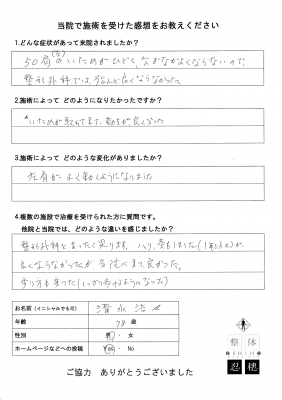 当院で施術を受けた感想をお教えください
1.どんな症状があって来院されましたか？
50肩(左)のいためがひどく、なかなかよくならないので、
整形外科では、殆んど良くならなかった
2.施術によって どのようになりたかったですか？
いためが取れてまて、動きが良くなった
3.施術によって どのような変化がありましたか？
左肩がよく動くようになりました
4.複数の施設で治療を受けられた方に質問です。
他院と当院では、どのような違いを感じましたか？
整形外科とまったく異ります、ハリ、灸もしました(1年以上)が、
良くならなかったが、当院へ来て良かった。
歩り方も変った(しっかり歩けるようになった)
お名前 (イニシャルでも可)
清水浩
年齢
78 歳
性別
男・女
ホームページなどへの投稿
Yes・No
整体
忍穂
ご協力 ありがとうございました